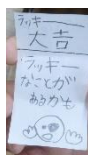 ラッキー
大吉
ラッキー
なことが
あるかも